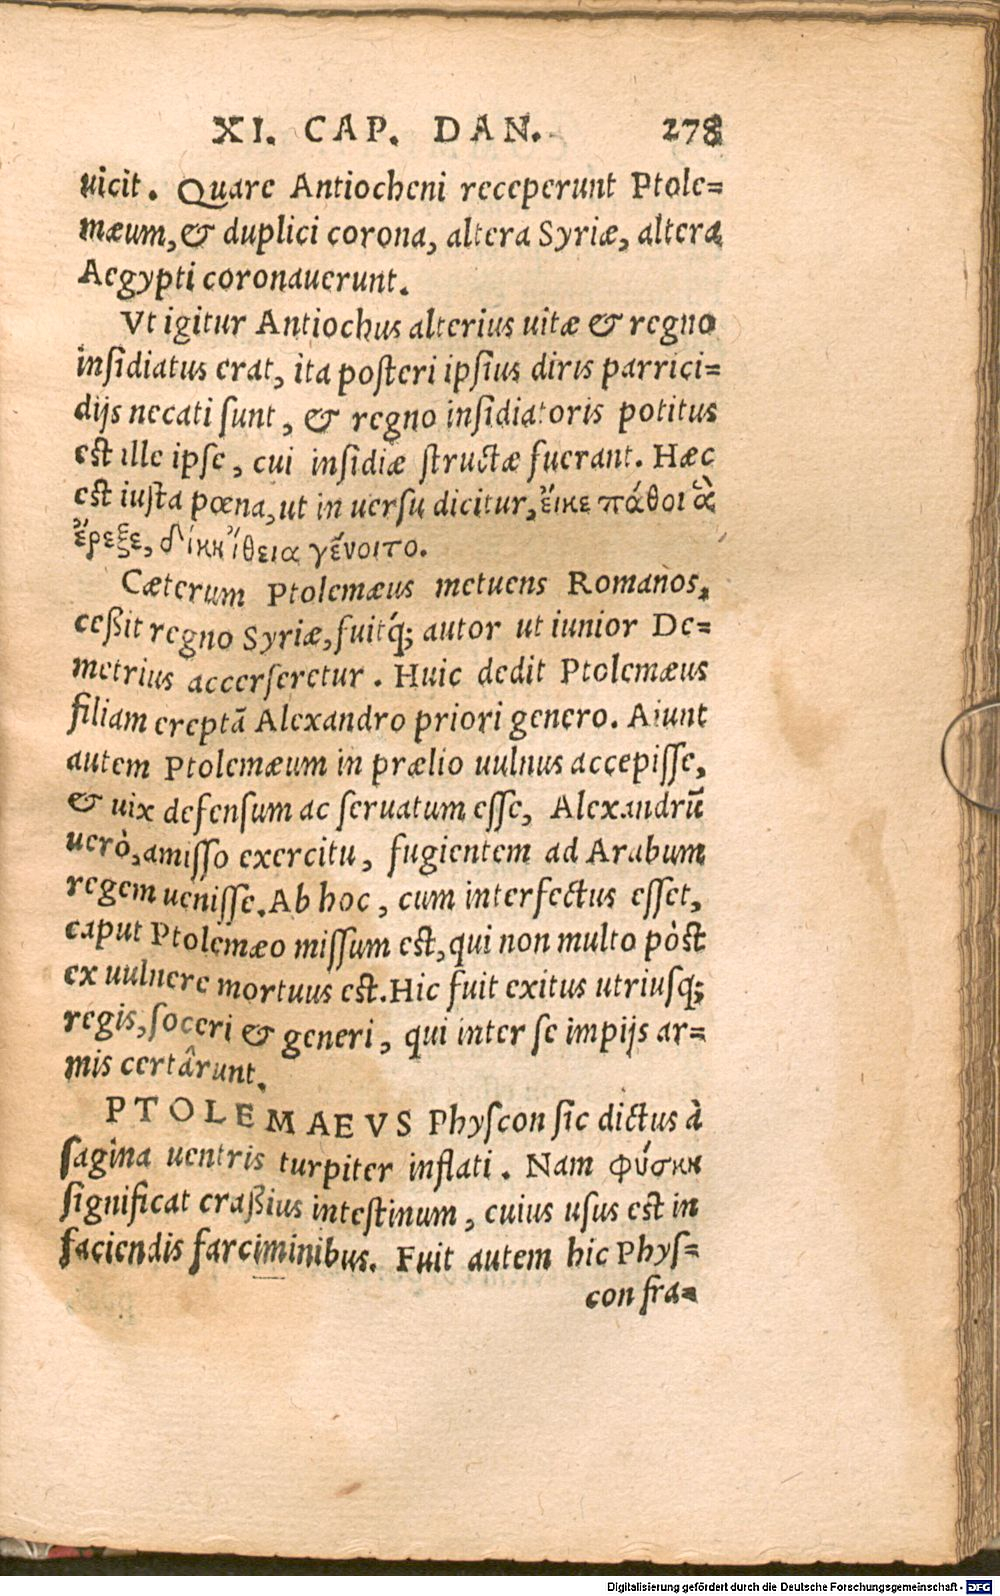 XI. CAP. DAN. 278
uicit. Quare Antiocheni receperunt Ptole=
mæum, & duplici corona, altera Syriæ, altera
Aegypti coronauerunt.
Vt igitur Antiochus alterius uitæ & regno
insidiatus erat, ita posteri ipsius diris parrici=
dijs necati sunt, & regno insidiatoris potitus
est ille ipse, cui insidiæ structæ fuerant. Hæc
est iusta pœna, ut in uersu dicitur, ἔικε πάθοι ἃ
ἔρεξε, δίκη ἴθεια γένοιτο.
Cæterum Ptolemæus metuens Romanos,
ceßit regno Syriæ, fuitq́; autor ut iunior De=
metrius accerseretur. Huic dedit Ptolemæus
filiam ereptā Alexandro priori genero. Aiunt
autem Ptolemæum in prælio uulnus accepisse,
& uix defensum ac seruatum esse, Alexandrū
uerò, amisso exercitu, fugientem ad Arabum
regem uenisse. Ab hoc, cum interfectus esset,
caput Ptolemæo missum est, qui non multo pòst
ex uulnere mortuus est. Hic fuit exitus utriusq;
regis, soceri & generi, qui inter se impijs ar=
mis certârunt.
PTOLEMAEVS Physcon sic dictus à
sagina uentris turpiter inflati. Nam φύσκη
significat craßius intestinum, cuius usus est in
faciendis farciminibus. Fuit autem hic Phys=
con fra=
Digitalisierung gefördert durch die Deutsche Forschungsgemeinschaft - DFG